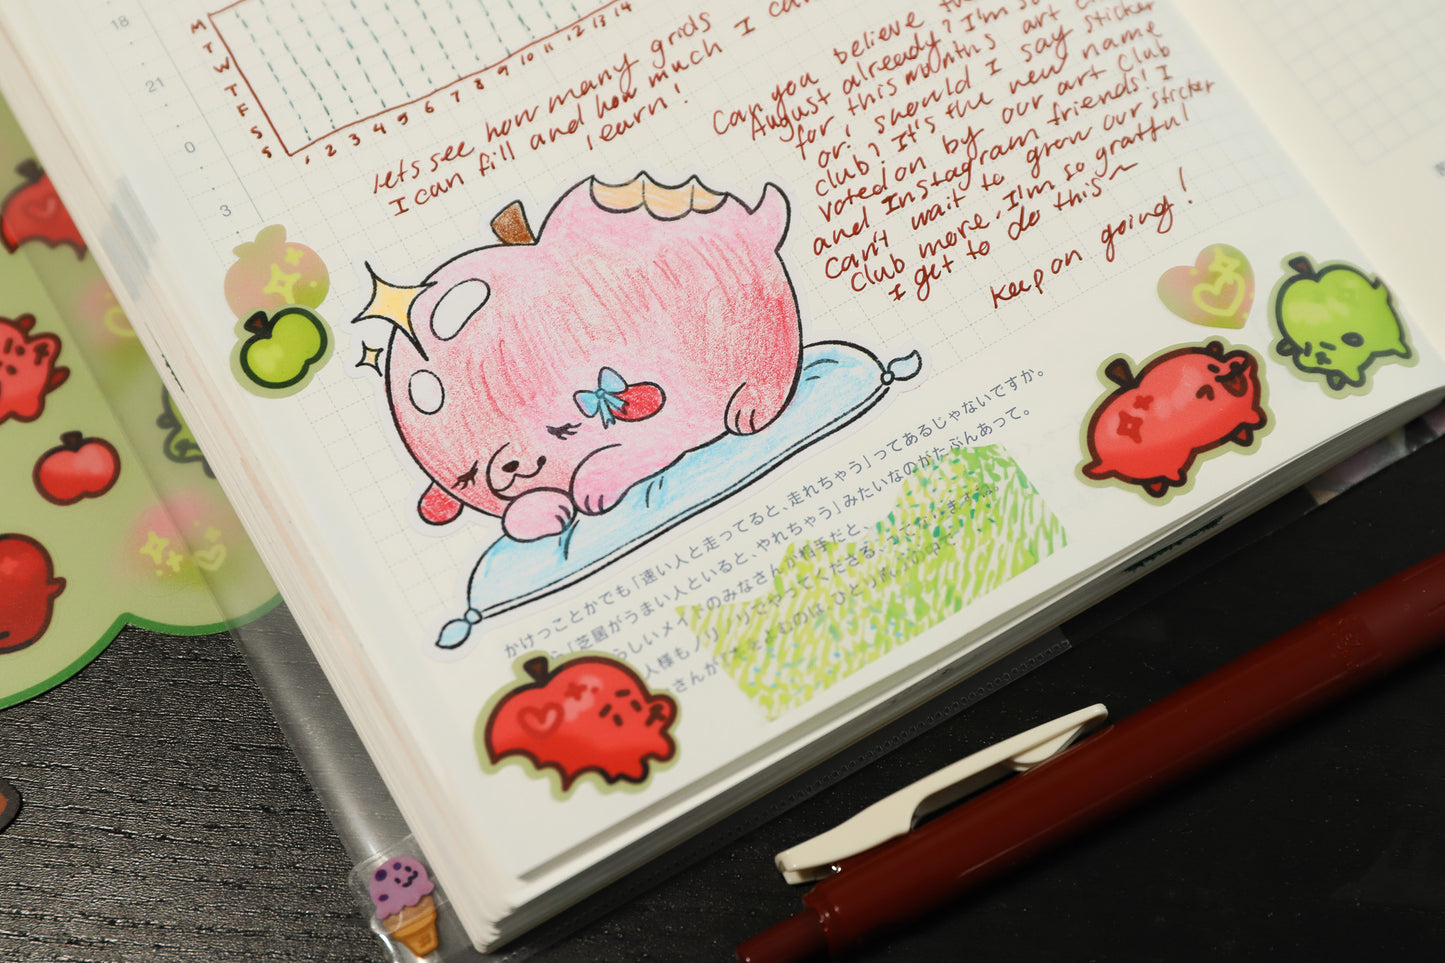 18
21
0
3
M
T
W
T
F
S
S
1 2 3 4 5 6 7 8 9 10 11 12 13 14
lets see how many grids
I can fill and how much I can
learn!
Can you believe
August already? I'm so
for this months art
or! should I say sticker
club? It's the new name
voted on by our art club
and Instagram friends! I
can't wait to grow our sticker
club more. I'm so gratful
I get to do this~
Keep on going!
かけっことかでも「速い人と走ってると、走れちゃう」ってあるじゃないですか。
「芝居がうまい人といると、やれちゃう」みたいなのがたぶんあって。
らしいメイドのみなさんが相手だと、
人様もノリノリでやってくださる、
さんが